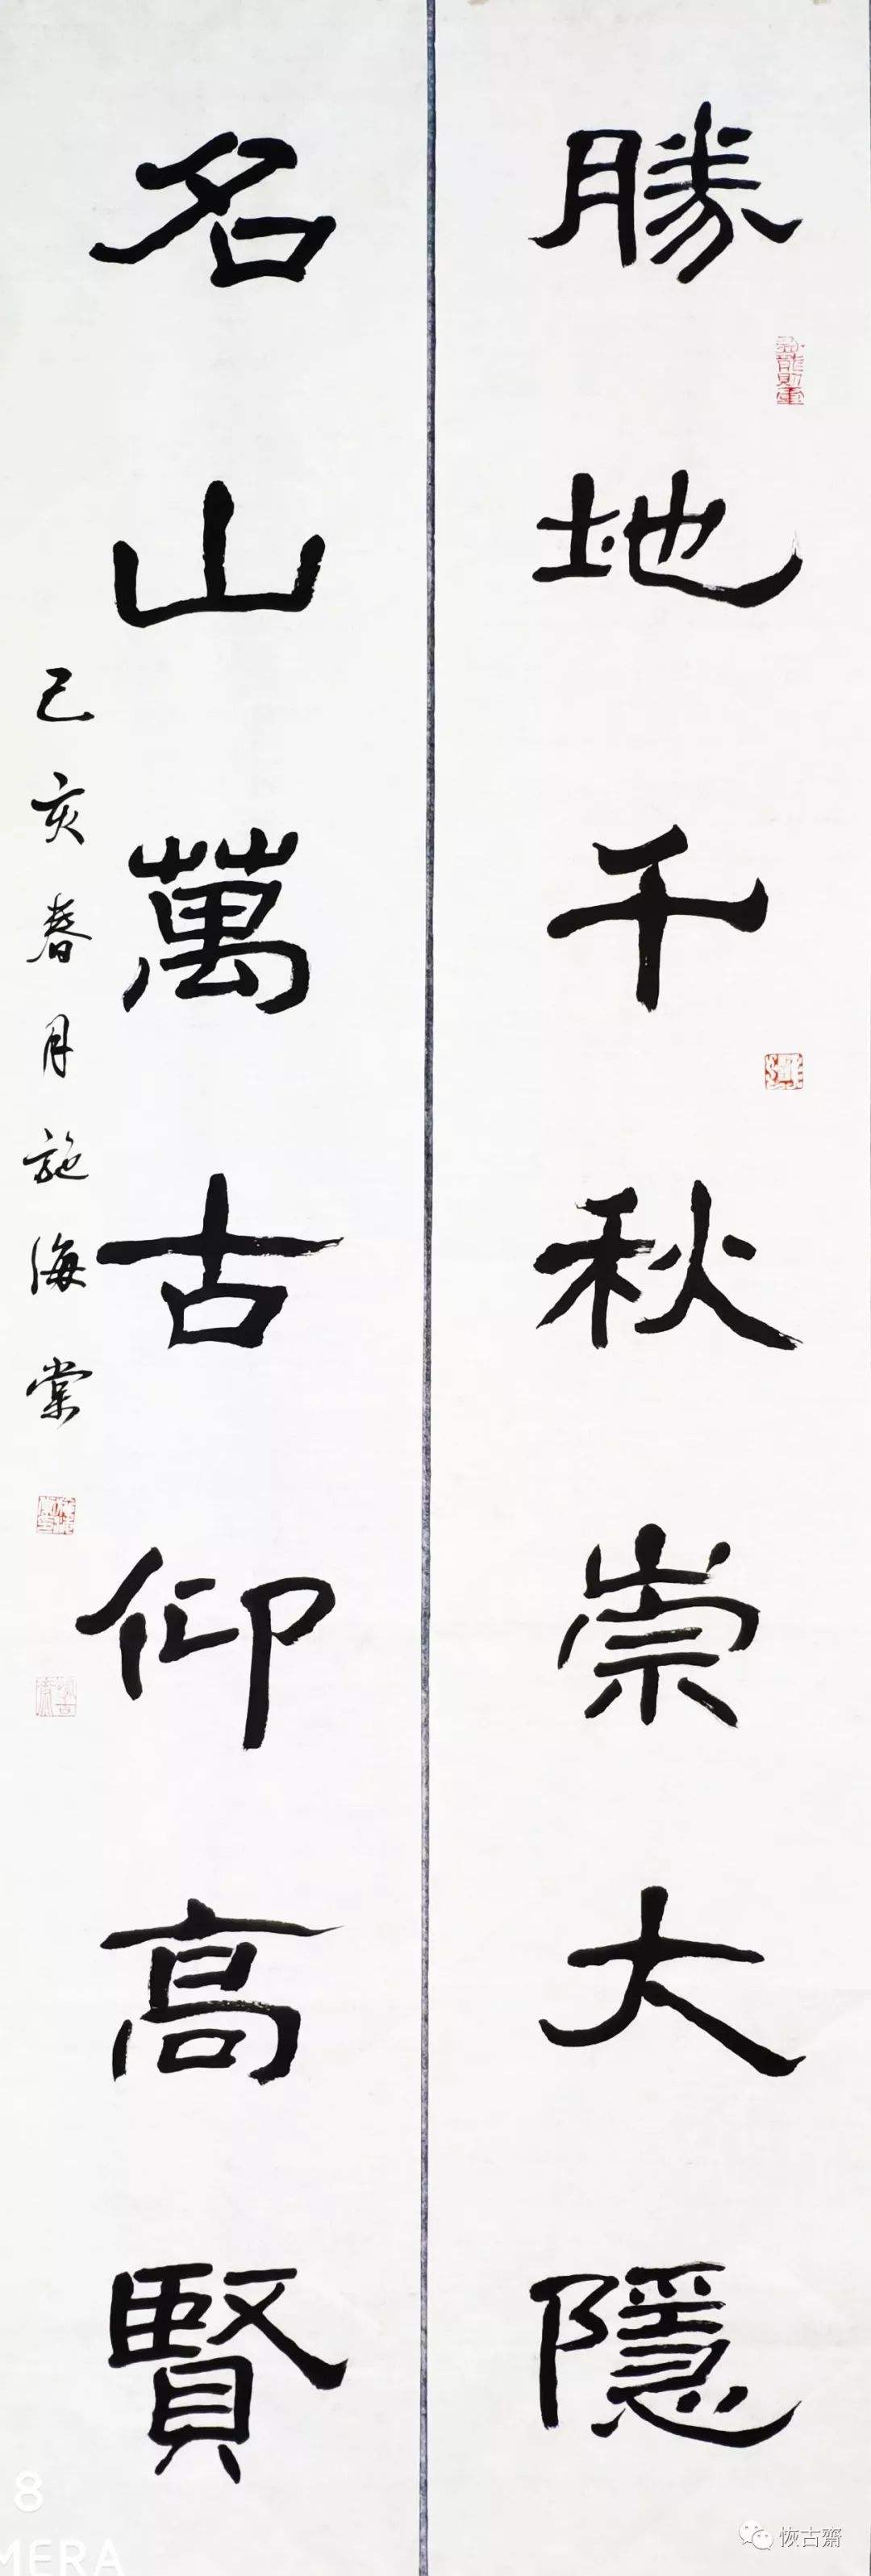 勝地千秋崇大隱
名山萬古仰高賢
己亥春月施海棠
恢古齋
8
MERA